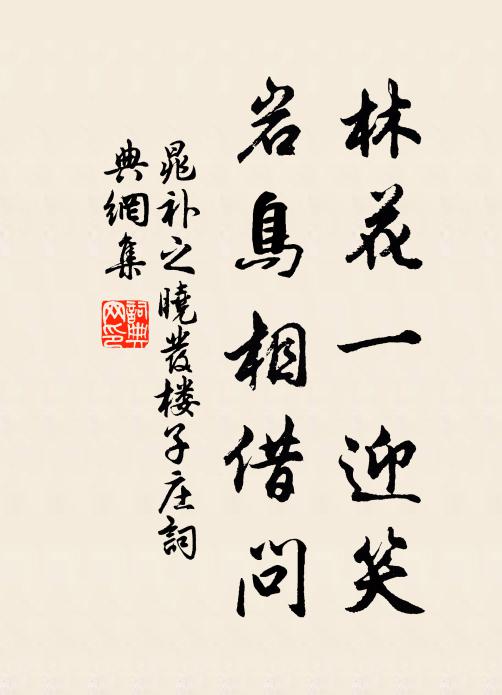 林花一迎笑
岩鳥相借问
晁补之曉發楼子庄詞
典網集
詞典
网印